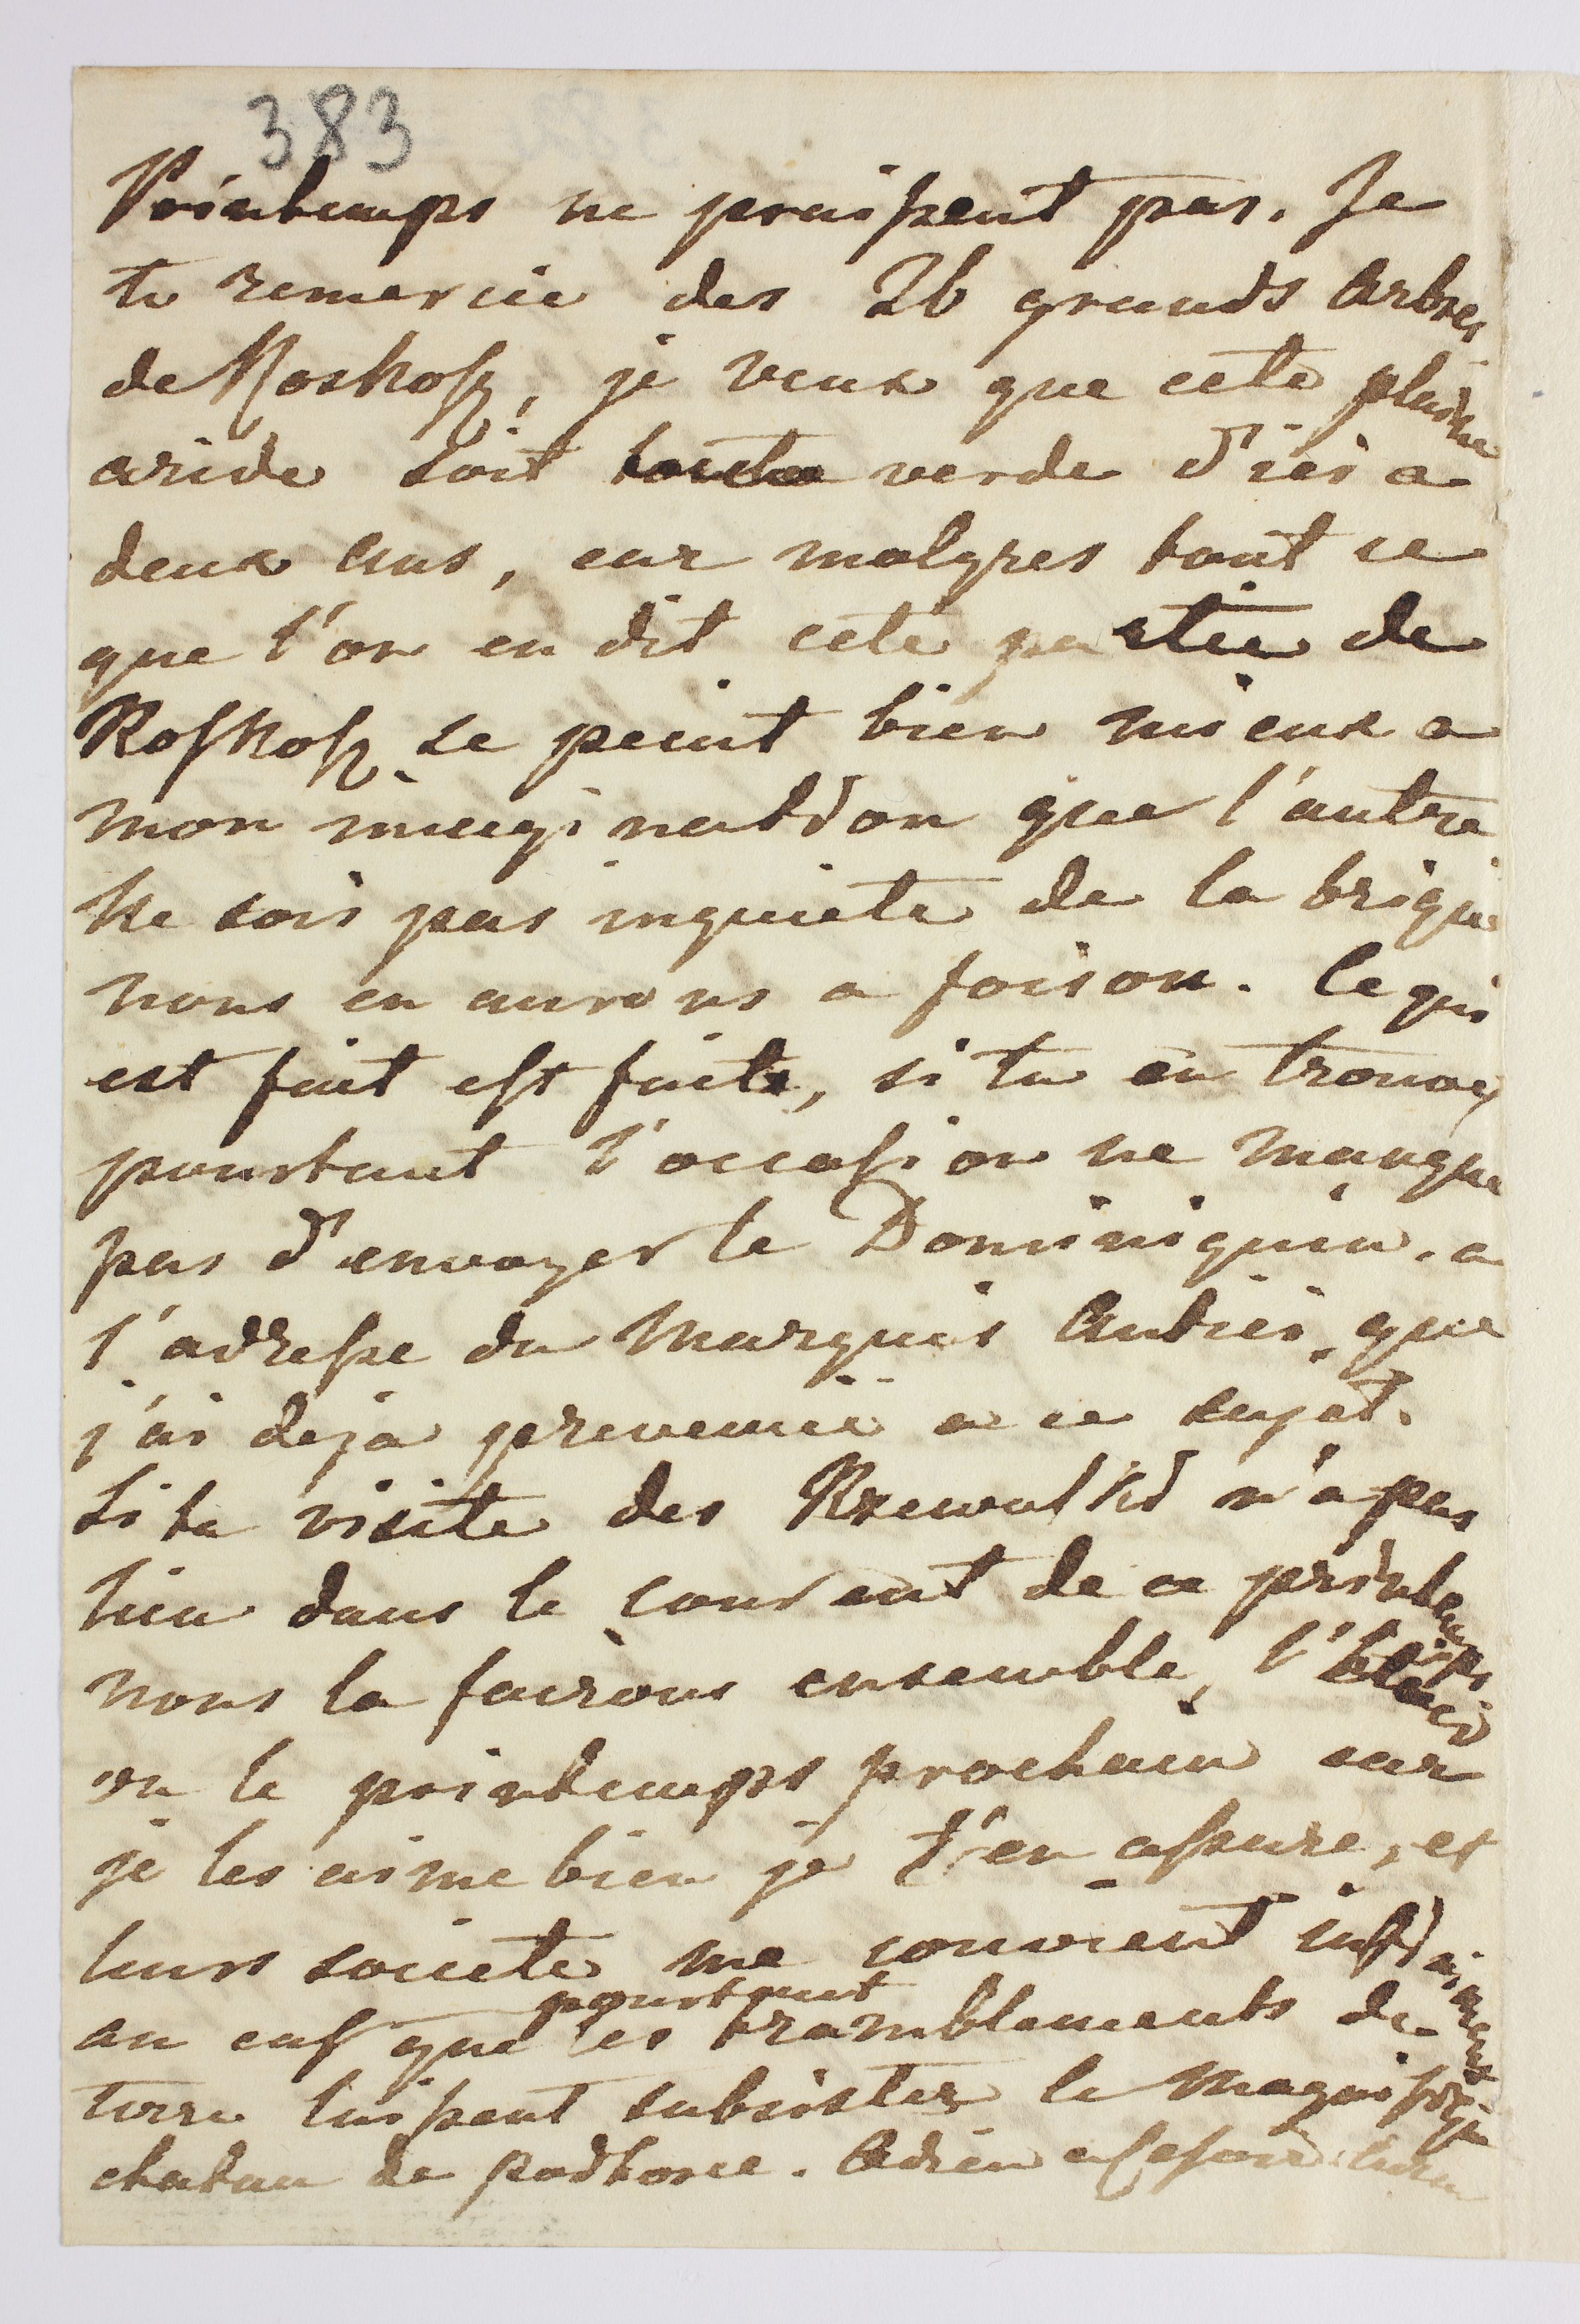 383
Printemps ne praissent pas. Je
te remercie des 26 grands Arbres
de Roskosz, je veux que cete plaine
aride soit toute verde d'ici a
deux ans, car malgres tout ce
que l'on en dit cete partie de
Roskosz se peint bien mieux a
mon imagination que l'autre
Ne sois pas inquiete de la brique
nous en aurons a foison. Ce qui
est fait est fait, si tu en trouves
pourtant l'occasion ne manque
pas d'envoyer le Dominiquin. a
l'adresse du Marquis Antici, que
j'ai deja prevenue a ce sujet.
Si ta visite des Rzewuski n'a pas
lieu dans le courent de ce printemps
nous la fairons ensemble, l'
ou le printemps prochain car
je les aime bien je t'en assure, et
leurs societe me convient
au cas que pourtant les tramblements de
terre laissent subsister le magnifique
chatau de podhorce. Adieu